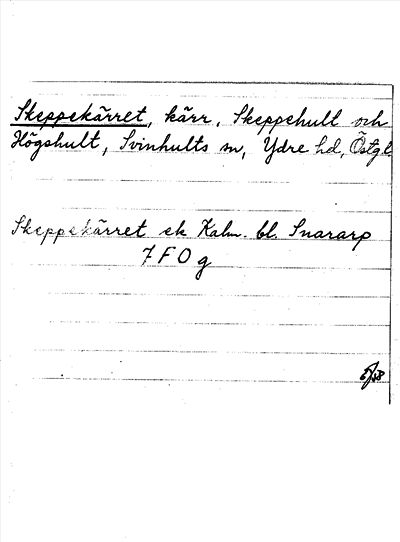 Skeppekärret, kärr, Skeppehult och
Högshult, Svinhults sn, Ydre hd, Östgl.
Skeppekärret ek Kalm. bl. Snararp
7 F O g